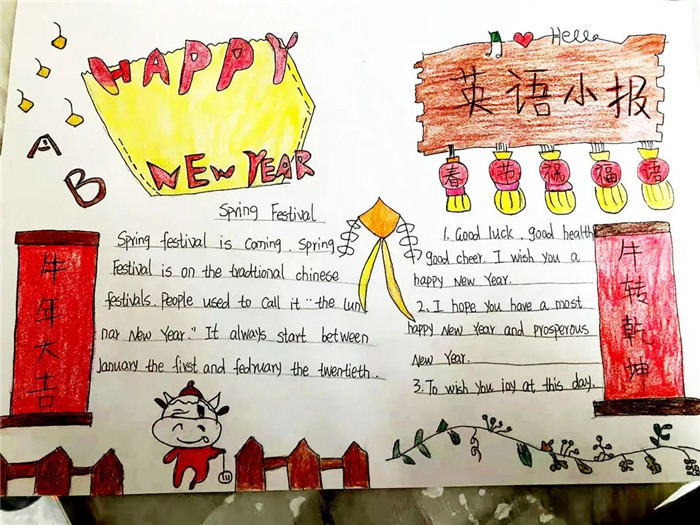 A
B
HAPPY
NEW YEAR
Hello
英语小报
春节祝福语
牛年大吉
Spring Festival
Spring festival is coming. Spring
Festival is on the tradtional chinese
festivals. People used to call it "the lun
nar New Year." It always start between
January the first and fedruary the twentieth.
1. Good luck, good health
good cheer. I wish you a
happy New Year.
2. I hope you have a most
happy New Year and prosperous
New Year.
3. To wish you joy at this day.
牛转乾坤